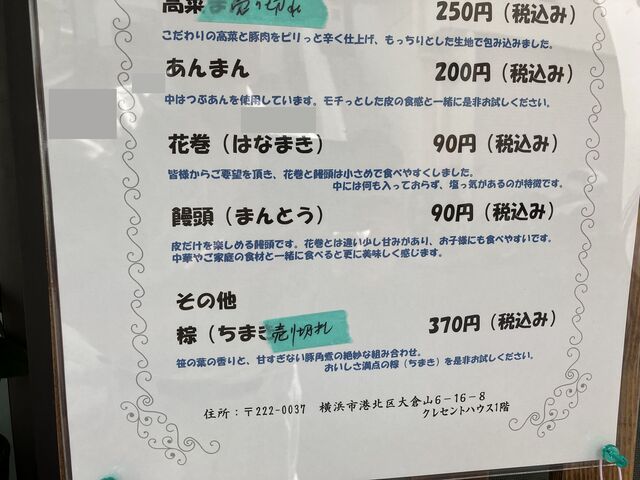 高菜ま売り切れ 250円（税込み）
こだわりの高菜と豚肉をピリっと辛く仕上げ、もっちりとした生地で包み込みました。
あんまん 200円（税込み）
中はつぶあんを使用しています。モチっとした皮の食感と一緒に是非お試しください。
花巻（はなまき） 90円（税込み）
皆様からご要望を頂き、花巻と饅頭は小さめで食べやすくしました。
中には何も入っておらず、塩っ気があるのが特徴です。
饅頭（まんとう） 90円（税込み）
皮だけを楽しめる饅頭です。花巻とは違い少し甘みがあり、お子様にも食べやすいです。
中華やご家庭の食材と一緒に食べると更に美味しく感じます。
その他
粽（ちまき売り切れ 370円（税込み）
笹の葉の香りと、甘すぎない豚角煮の絶妙な組み合わせ。
おいしさ満点の粽（ちまき）を是非お試しください。
住所：〒222-0037 横浜市港北区大倉山6－16－8
クレセントハウス1階